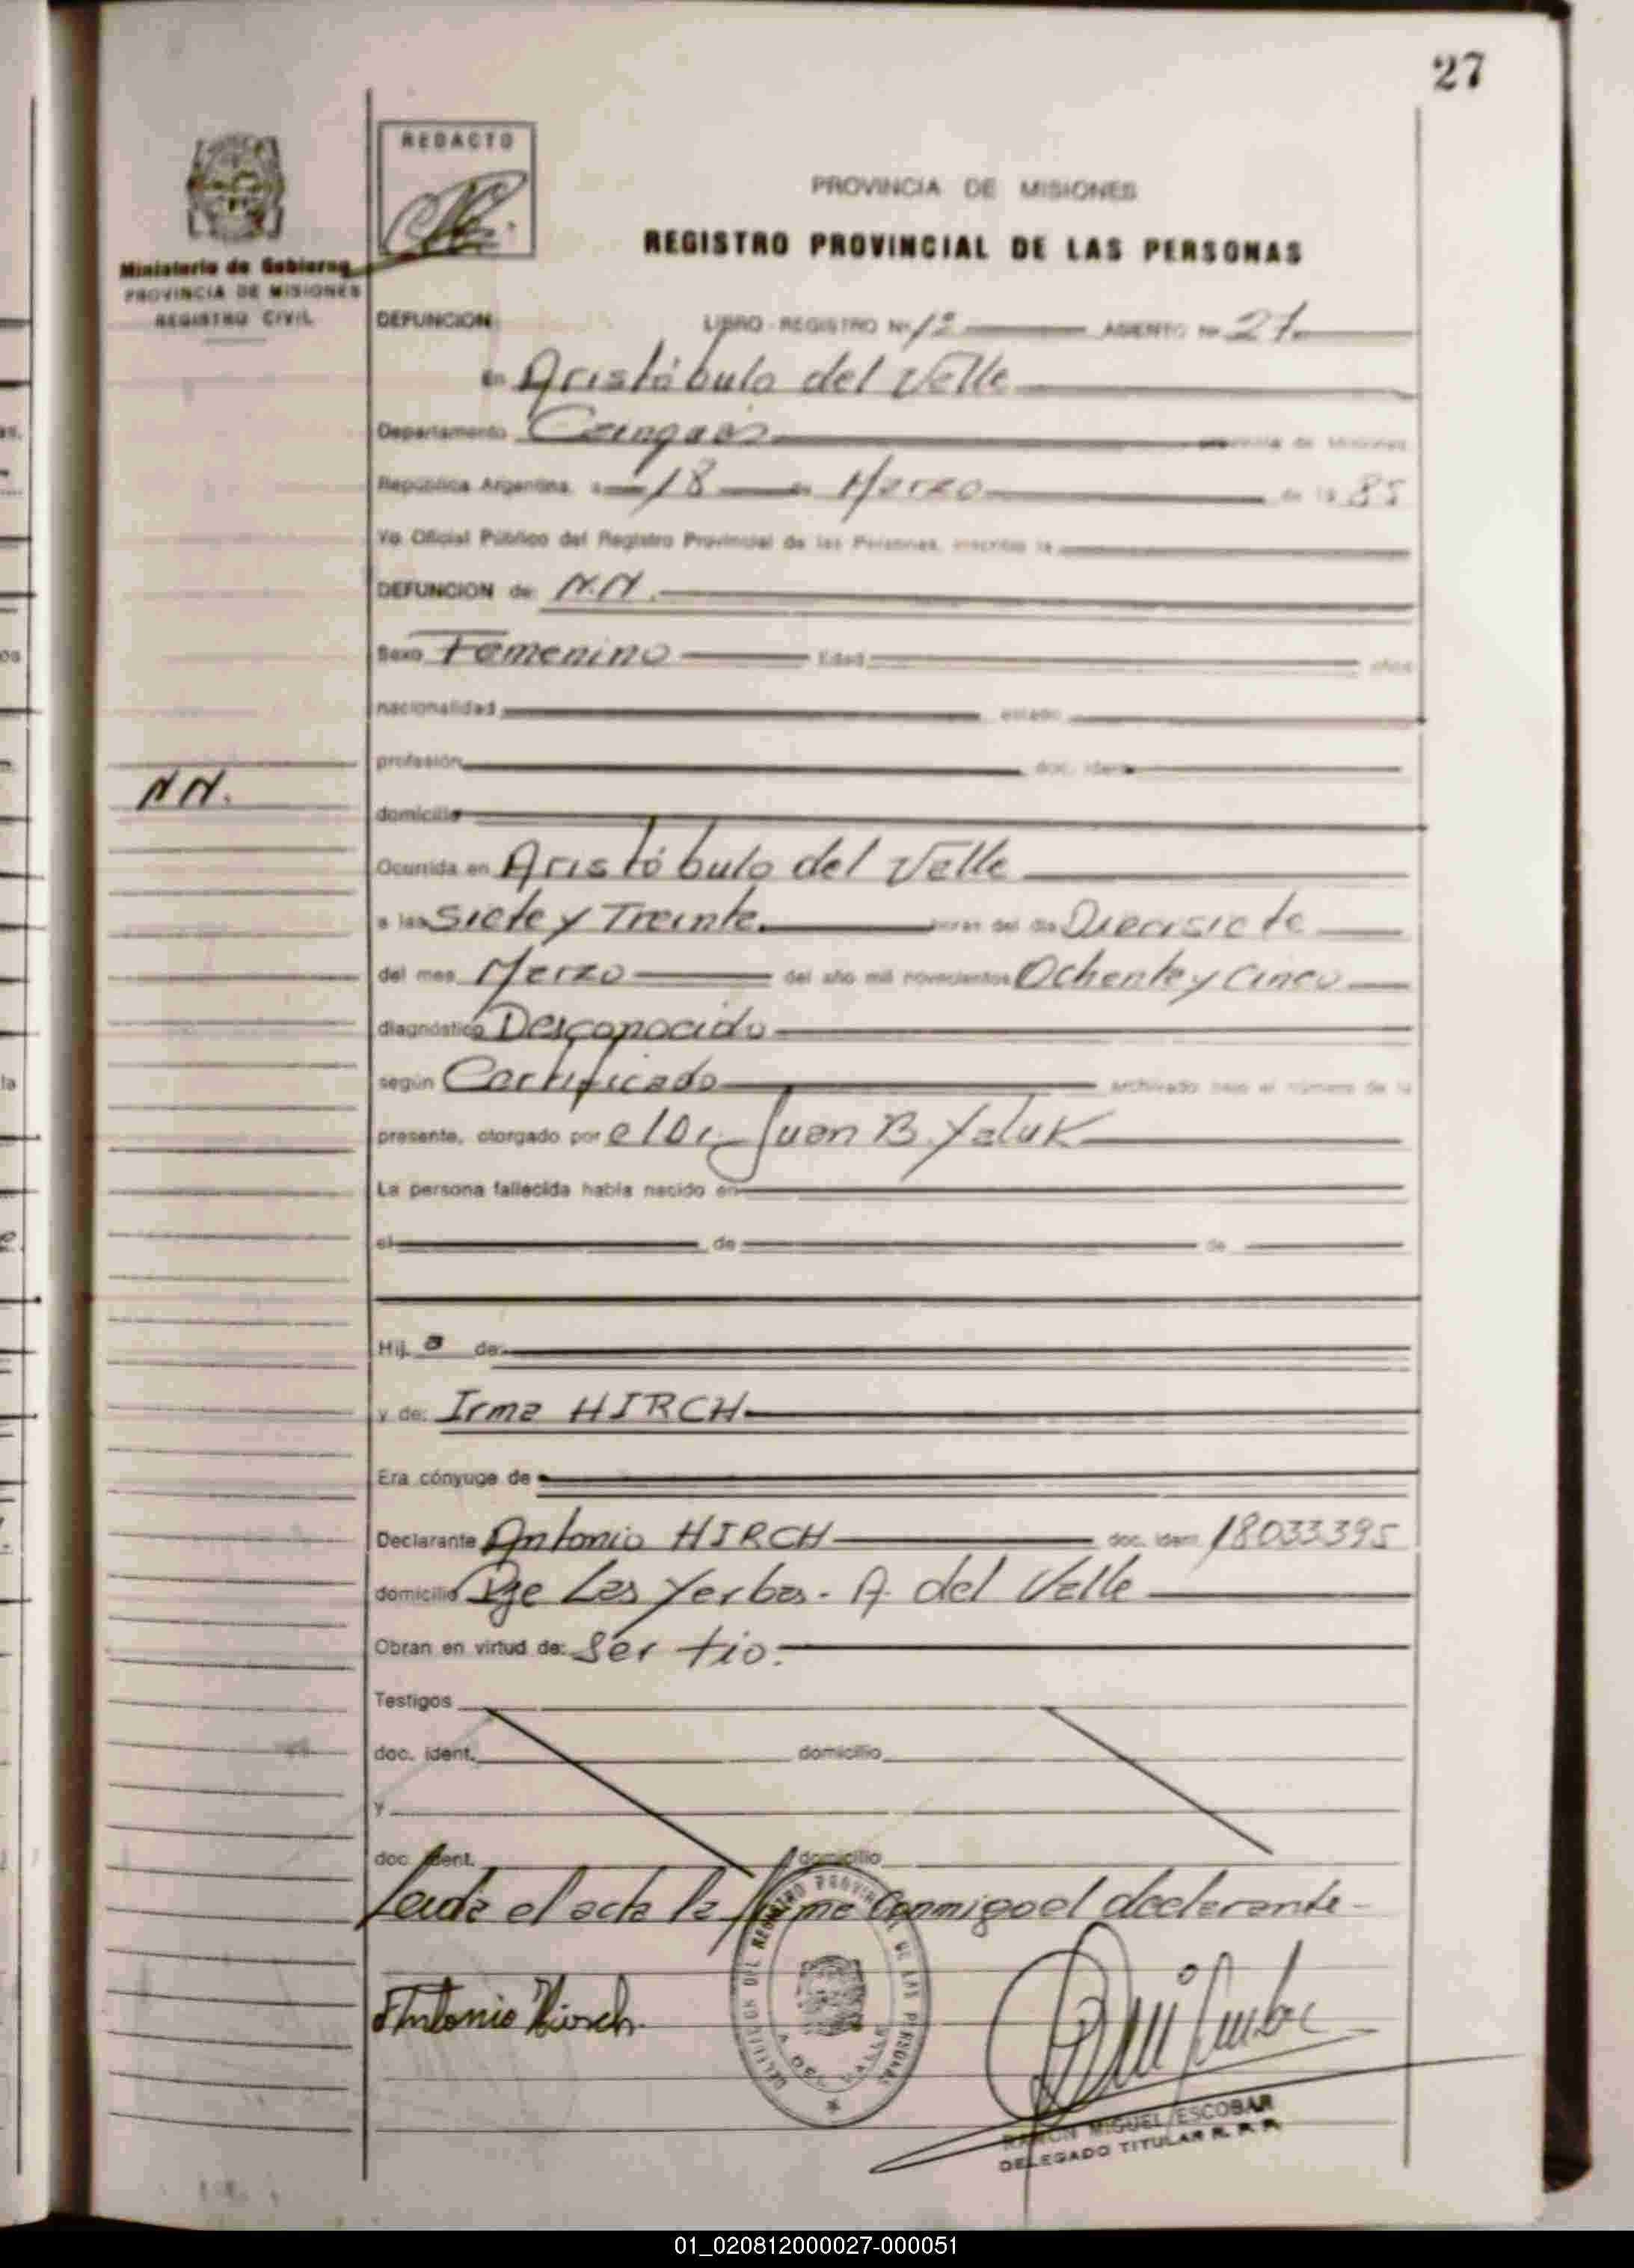 27
REDACTO
PROVINCIA DE MISIONES
REGISTRO PROVINCIAL DE LAS PERSONAS
Ministerio de Gobierno
PROVINCIA DE MISIONES
REGISTRO CIVIL
DEFUNCION LIBRO - REGISTRO Nº 1º ASIENTO Nº 27
En Aristóbulo del Valle
Departamento Cainguas provincia de Misiones
República Argentina, a 18 de Marzo de 19 85
Yo Oficial Público del Registro Provincial de las Personas, inscribo la
DEFUNCION de: N.N.
Sexo Femenino Edad años
nacionalidad estado
profesión doc. ident.
NN.
domicilio
Ocurrida en Aristóbulo del Valle
a las Siete y Treinta horas del día Diecisiete
del mes Marzo del año mil novecientos Ochenta y Cinco
diagnóstico Desconocido
según Certificado archivado bajo el número de la
presente, otorgado por el Dr. Juan B. Yaluk
La persona fallecida había nacido en
el de de
Hij a de:
y de: Irma HIRCH
Era cónyuge de
Declarante Antonio HIRCH doc. iden. 18033395
domicilio Pje Las Yerbas - A. del Valle
Obran en virtud de: Ser tio.
Testigos
doc. ident. domicilio
y
doc. ident. domicilio
Leida el acta la firma Conmigo el declarante -
Antonio Hirch.
RAMON MIGUEL ESCOBAR
DELEGADO TITULAR R. P. P.
01_020812000027-000051